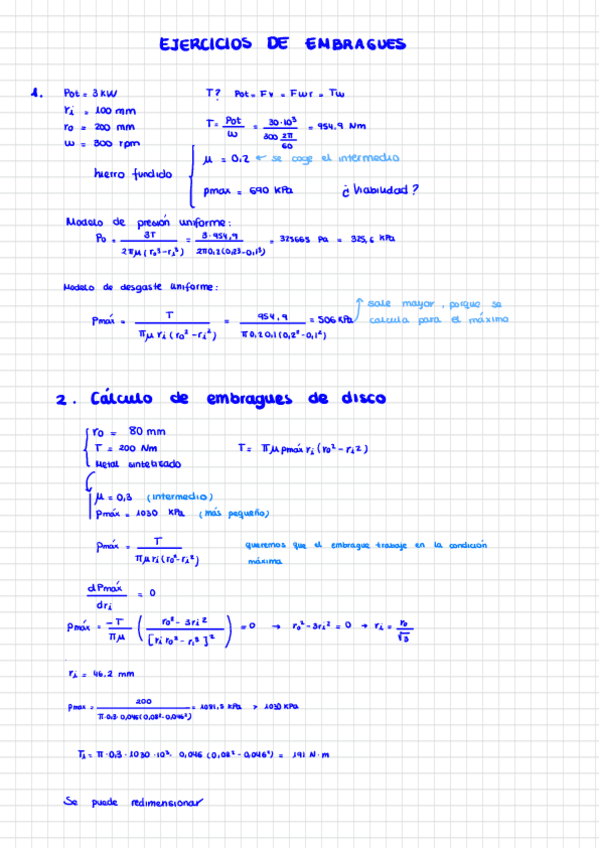 EJERCICIOS DE EMBRAGUES
1. Pot = 3 kW T? Pot = Fv = Fwr = Tw
ri = 100 mm
ro = 200 mm T = Pot/ω = 30·10³/(300 2π/60) = 954,9 Nm
ω = 300 rpm
hierro fundido μ = 0.2 ← se coge el intermedio
pmax = 690 kPa ¿Viabilidad?
Modelo de presión uniforme:
Po = 3T/(2πμ(ro³-ri³)) = 3·954,9/(2π0,2(0,2³-0,1³)) = 325665 Pa = 325,6 kPa
Modelo de desgaste uniforme:
Pmáx = T/(πμ ri(ro²-ri²)) = 954,9/(π0,2 0,1(0,2²-0,1²)) = 506 kPa
sale mayor, porque se
calcula para el máximo
2. Cálculo de embragues de disco
ro = 80 mm
T = 200 Nm T = πμpmáx ri(ro²-ri2)
Metal sinterizado
μ = 0,3 (intermedio)
Pmáx = 1030 kPa (más pequeño)
Pmáx = T/(πμri(ro²-ri²)) queremos que el embrague trabaje en la condición
máxima
dPmáx/dri = 0
Pmáx = -T/πμ ((ro²-3ri2)/[ri ro²-ri³]²) = 0 → ro²-3ri² = 0 → ri = ro/√3
ri = 46.2 mm
pmax = 200/(π·0.3·0,046(0,08²-0,046²)) > 1030 kPa
T1 = π·0,3·1030·10³·0,046(0,08²-0,046²) = 191 N·m
Se puede redimensionar